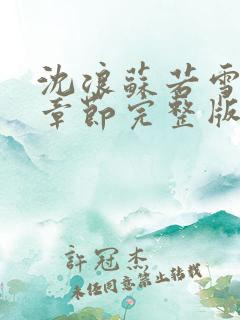 沈浪蘇若雪
章節完整版
許冠杰
未经同意禁止转载